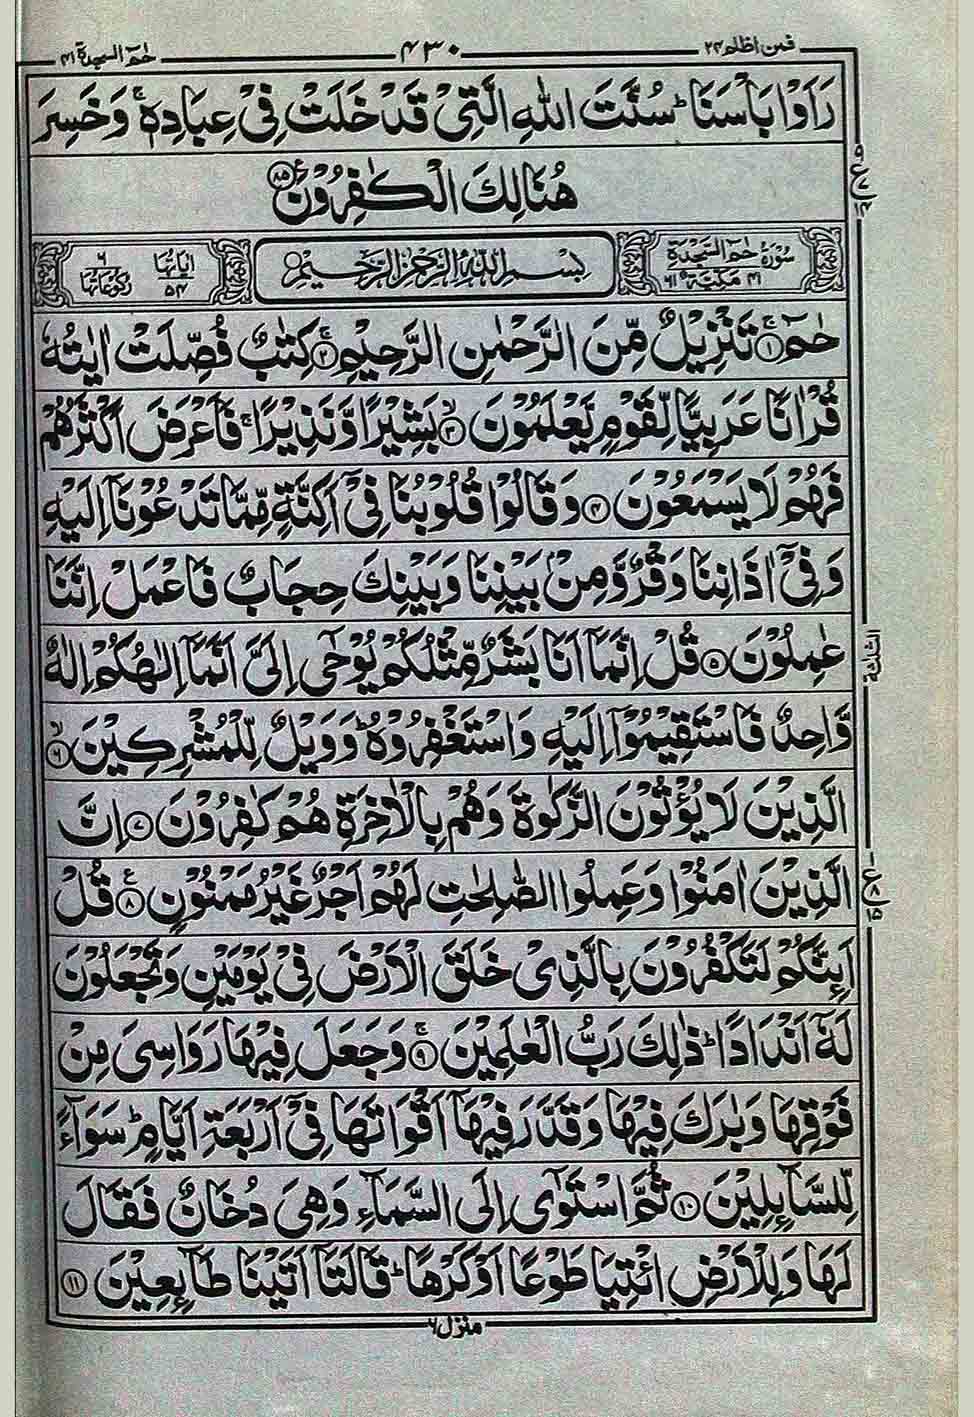 فمن اظلم ۲۴ ۴۳۰ حٰم السجدة ۴۱
رَاَوْا بَاْسَنَا ؕ سُنَّتَ اللّٰهِ الَّتِیْ قَدْ خَلَتْ فِیْ عِبَادِهٖ ۚ وَ خَسِرَ
هُنَالِكَ الْكٰفِرُوْنَ ﴿۸۵﴾
سُوْرَةُ حٰمٓ السَّجْدَةِ مَكِّیَّةٌ
۴۱ ۶۱
بِسْمِ اللّٰهِ الرَّحْمٰنِ الرَّحِیْمِ
اٰیَاتُهَا ۵۴
رُكُوْعَاتُهَا ۶
حٰمٓ ۚ﴿۱﴾ تَنْزِیْلٌ مِّنَ الرَّحْمٰنِ الرَّحِیْمِ ۚ﴿۲﴾ كِتٰبٌ فُصِّلَتْ اٰیٰتُهٗ
قُرْاٰنًا عَرَبِیًّا لِّقَوْمٍ یَّعْلَمُوْنَ ۙ﴿۳﴾ بَشِیْرًا وَّ نَذِیْرًا ۚ فَاَعْرَضَ اَكْثَرُهُمْ
فَهُمْ لَا یَسْمَعُوْنَ ﴿۴﴾ وَ قَالُوْا قُلُوْبُنَا فِیْۤ اَكِنَّةٍ مِّمَّا تَدْعُوْنَاۤ اِلَیْهِ
وَ فِیْۤ اٰذَانِنَا وَقْرٌ وَّ مِنْۢ بَیْنِنَا وَ بَیْنِكَ حِجَابٌ فَاعْمَلْ اِنَّنَا
عٰمِلُوْنَ ﴿۵﴾ قُلْ اِنَّمَاۤ اَنَا بَشَرٌ مِّثْلُكُمْ یُوْحٰۤی اِلَیَّ اَنَّمَاۤ اِلٰهُكُمْ اِلٰهٌ
وَّاحِدٌ فَاسْتَقِیْمُوْۤا اِلَیْهِ وَ اسْتَغْفِرُوْهُ ؕ وَ وَیْلٌ لِّلْمُشْرِكِیْنَ ۙ﴿۶﴾
الَّذِیْنَ لَا یُؤْتُوْنَ الزَّكٰوةَ وَ هُمْ بِالْاٰخِرَةِ هُمْ كٰفِرُوْنَ ﴿۷﴾ اِنَّ
الَّذِیْنَ اٰمَنُوْا وَ عَمِلُوا الصّٰلِحٰتِ لَهُمْ اَجْرٌ غَیْرُ مَمْنُوْنٍ ﴿۸﴾ قُلْ
اَىِٕنَّكُمْ لَتَكْفُرُوْنَ بِالَّذِیْ خَلَقَ الْاَرْضَ فِیْ یَوْمَیْنِ وَ تَجْعَلُوْنَ
لَهٗۤ اَنْدَادًا ؕ ذٰلِكَ رَبُّ الْعٰلَمِیْنَ ۚ﴿۹﴾ وَ جَعَلَ فِیْهَا رَوَاسِیَ مِنْ
فَوْقِهَا وَ بٰرَكَ فِیْهَا وَ قَدَّرَ فِیْهَاۤ اَقْوَاتَهَا فِیْۤ اَرْبَعَةِ اَیَّامٍ ؕ سَوَآءً
لِّلسَّآىِٕلِیْنَ ﴿۱۰﴾ ثُمَّ اسْتَوٰۤی اِلَی السَّمَآءِ وَ هِیَ دُخَانٌ فَقَالَ
لَهَا وَ لِلْاَرْضِ ائْتِیَا طَوْعًا اَوْ كَرْهًا ؕ قَالَتَاۤ اَتَیْنَا طَآىِٕعِیْنَ ﴿۱۱﴾
منزل ۶
۹
ع ۷
۱۴
الثلثة
۱
ع ۸
۱۵